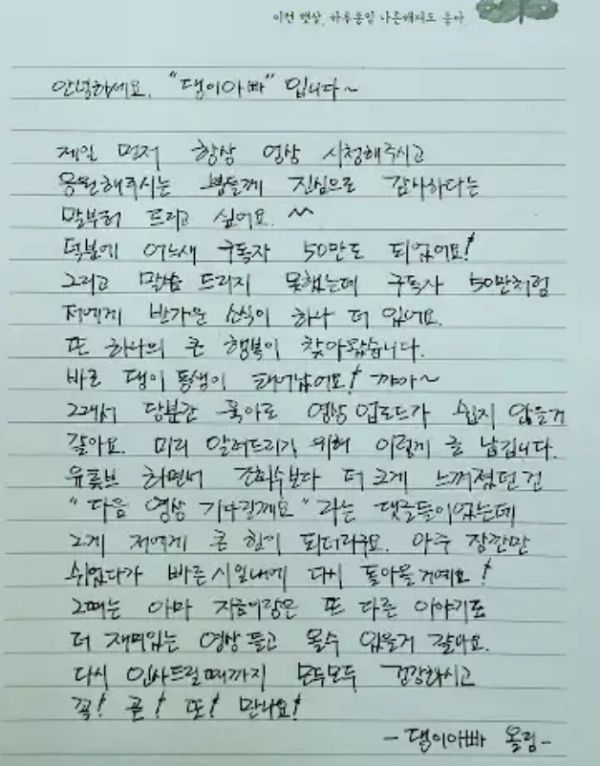 이런 햇살, 하루종일 나른해져도 좋아
안녕하세요. "댕이아빠" 입니다~
제일 먼저 항상 영상 시청해주시고
응원해주시는 분들께 진심으로 감사하다는
말부터 드리고 싶어요. ^^
덕분에 어느새 구독자 50만도 되었어요!
그리고 말씀 드리지 못했는데 구독자 50만처럼
저에게 반가운 소식이 하나 더 있어요.
또 하나의 큰 행복이 찾아왔습니다.
바로 댕이 동생이 태어났어요! 꺄아~
그래서 당분간 육아로 영상 업로드가 쉽지 않을거
같아요. 미리 알려드리기 위해 이렇게 글 남깁니다.
유튜브 하면서 조회수보다 더 크게 느껴졌던건
"다음 영상 기다릴께요" 라는 댓글들이었는데
그게 저에게 큰 힘이 되더라구요. 아주 잠깐만
쉬었다가 빠른시일내에 다시 돌아올거예요!
그때는 아마 지금이랑은 또 다른 이야기로
더 재미있는 영상 들고 올수 있을거 같아요.
다시 인사드릴때까지 모두모두 건강하시고
꼭! 곧! 또! 만나요!
- 댕이아빠 올림 -